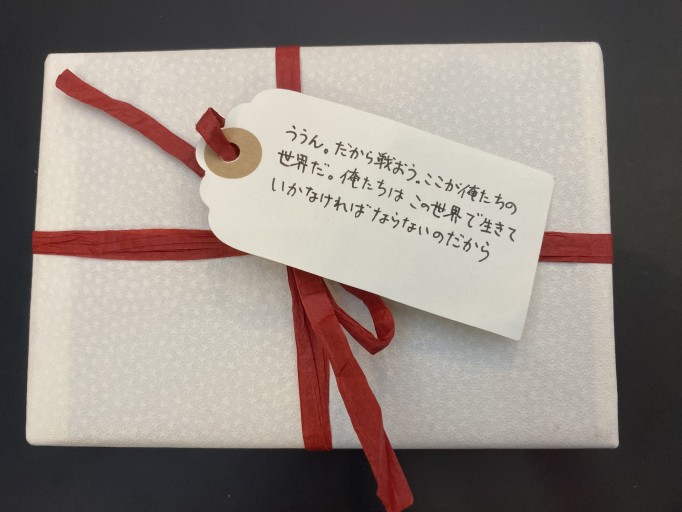 ううん。だから戦おう。ここが俺たちの
世界だ。俺たちは この世界で生きて
いかなければならないのだから